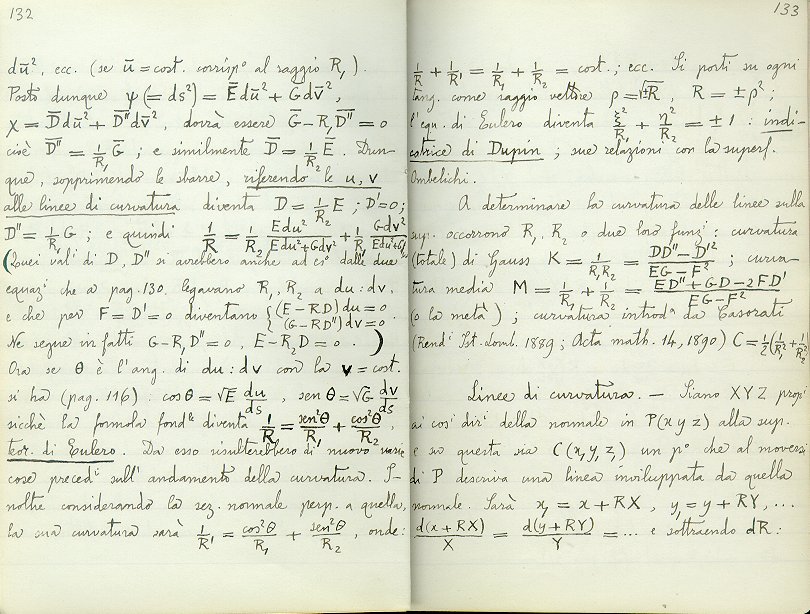 132
dū², ecc. (se ū = cost. corrispᵉ al raggio R₁).
Posto dunque ψ(= ds²) = E̅dū² + G̅dv̅²,
χ = D̅dū² + D̅''dv̅², dovrà essere G̅ − R₁D̅'' = 0
cioè D̅'' = 1/R₁ G̅ ; e similmente D̅ = 1/R₂ E̅. Dun-
que, sopprimendo le sbarre, riferendo le u, v
alle linee di curvatura diventa D = 1/R₂ E ; D' = 0 ;
D'' = 1/R₁ G ; e quindi 1/R = 1/R₂ Edu²/(Edu²+Gdv²) + 1/R₁ Gdv²/(Edu²+Gdv²)
(Quei valⁱ di D, D'' si avrebbero anche ad es° dalle due
equazⁱ che a pag. 130 legavano R₁, R₂ a du : dv,
e che per F = D' = 0 diventano { (E − RD) du = 0
(G − RD'') dv = 0.
Ne segue infatti G − R₁D'' = 0, E − R₂D = 0. )
Ora se θ è l'ang. di du : dv con la v = cost.
si ha (pag. 116) : cosθ = √E du/ds, senθ = √G dv/ds
sicchè la formola fondˡᵉ diventa 1/R = sen²θ/R₁ + cos²θ/R₂,
teor. di Eulero. Da esso risulterebbero di nuovo varie
cose precedⁱ sull'andamento della curvatura. I-
noltre considerando la sez. normale perp. a quella,
la sua curvatura sarà 1/R' = cos²θ/R₁ + sen²θ/R₂, onde:
133
1/R + 1/R' = 1/R₁ + 1/R₂ = cost. ; ecc. Si porti su ogni
tang. come raggio vettore ρ = √±R, R = ±ρ² ;
l'equ. di Eulero diventa ξ²/R₁ + η²/R₂ = ±1 : indi-
catrice di Dupin ; sue relazioni con la superf.
Ombelichi.
A determinare la curvatura delle linee sulla
sup. occorrono R₁, R₂ o due loro funzⁱ : curvatura
(totale) di Gauss K = 1/R₁R₂ = (DD'' − D'²)/(EG − F²) ; curva-
tura media M = 1/R₁ + 1/R₂ = (ED'' + GD − 2FD')/(EG − F²)
(o la metà) ; curvatura introdᵃ da Casorati
(Rendⁱ Ist. Lomb. 1889 ; Acta math. 14, 1890) C = ½(1/R₁² + 1/R₂²
Linee di curvatura. — Siano X Y Z propⁱ
ai cosⁱ dirⁱ della normale in P(x y z) alla sup.
e su questa sia C(x₁ y₁ z₁) un p° che al muoversi
di P descriva una linea inviluppata da quella
normale. Sarà x₁ = x + RX, y₁ = y + RY, ...
d(x + RX)/X = d(y + RY)/Y = ... e sottraendo dR :